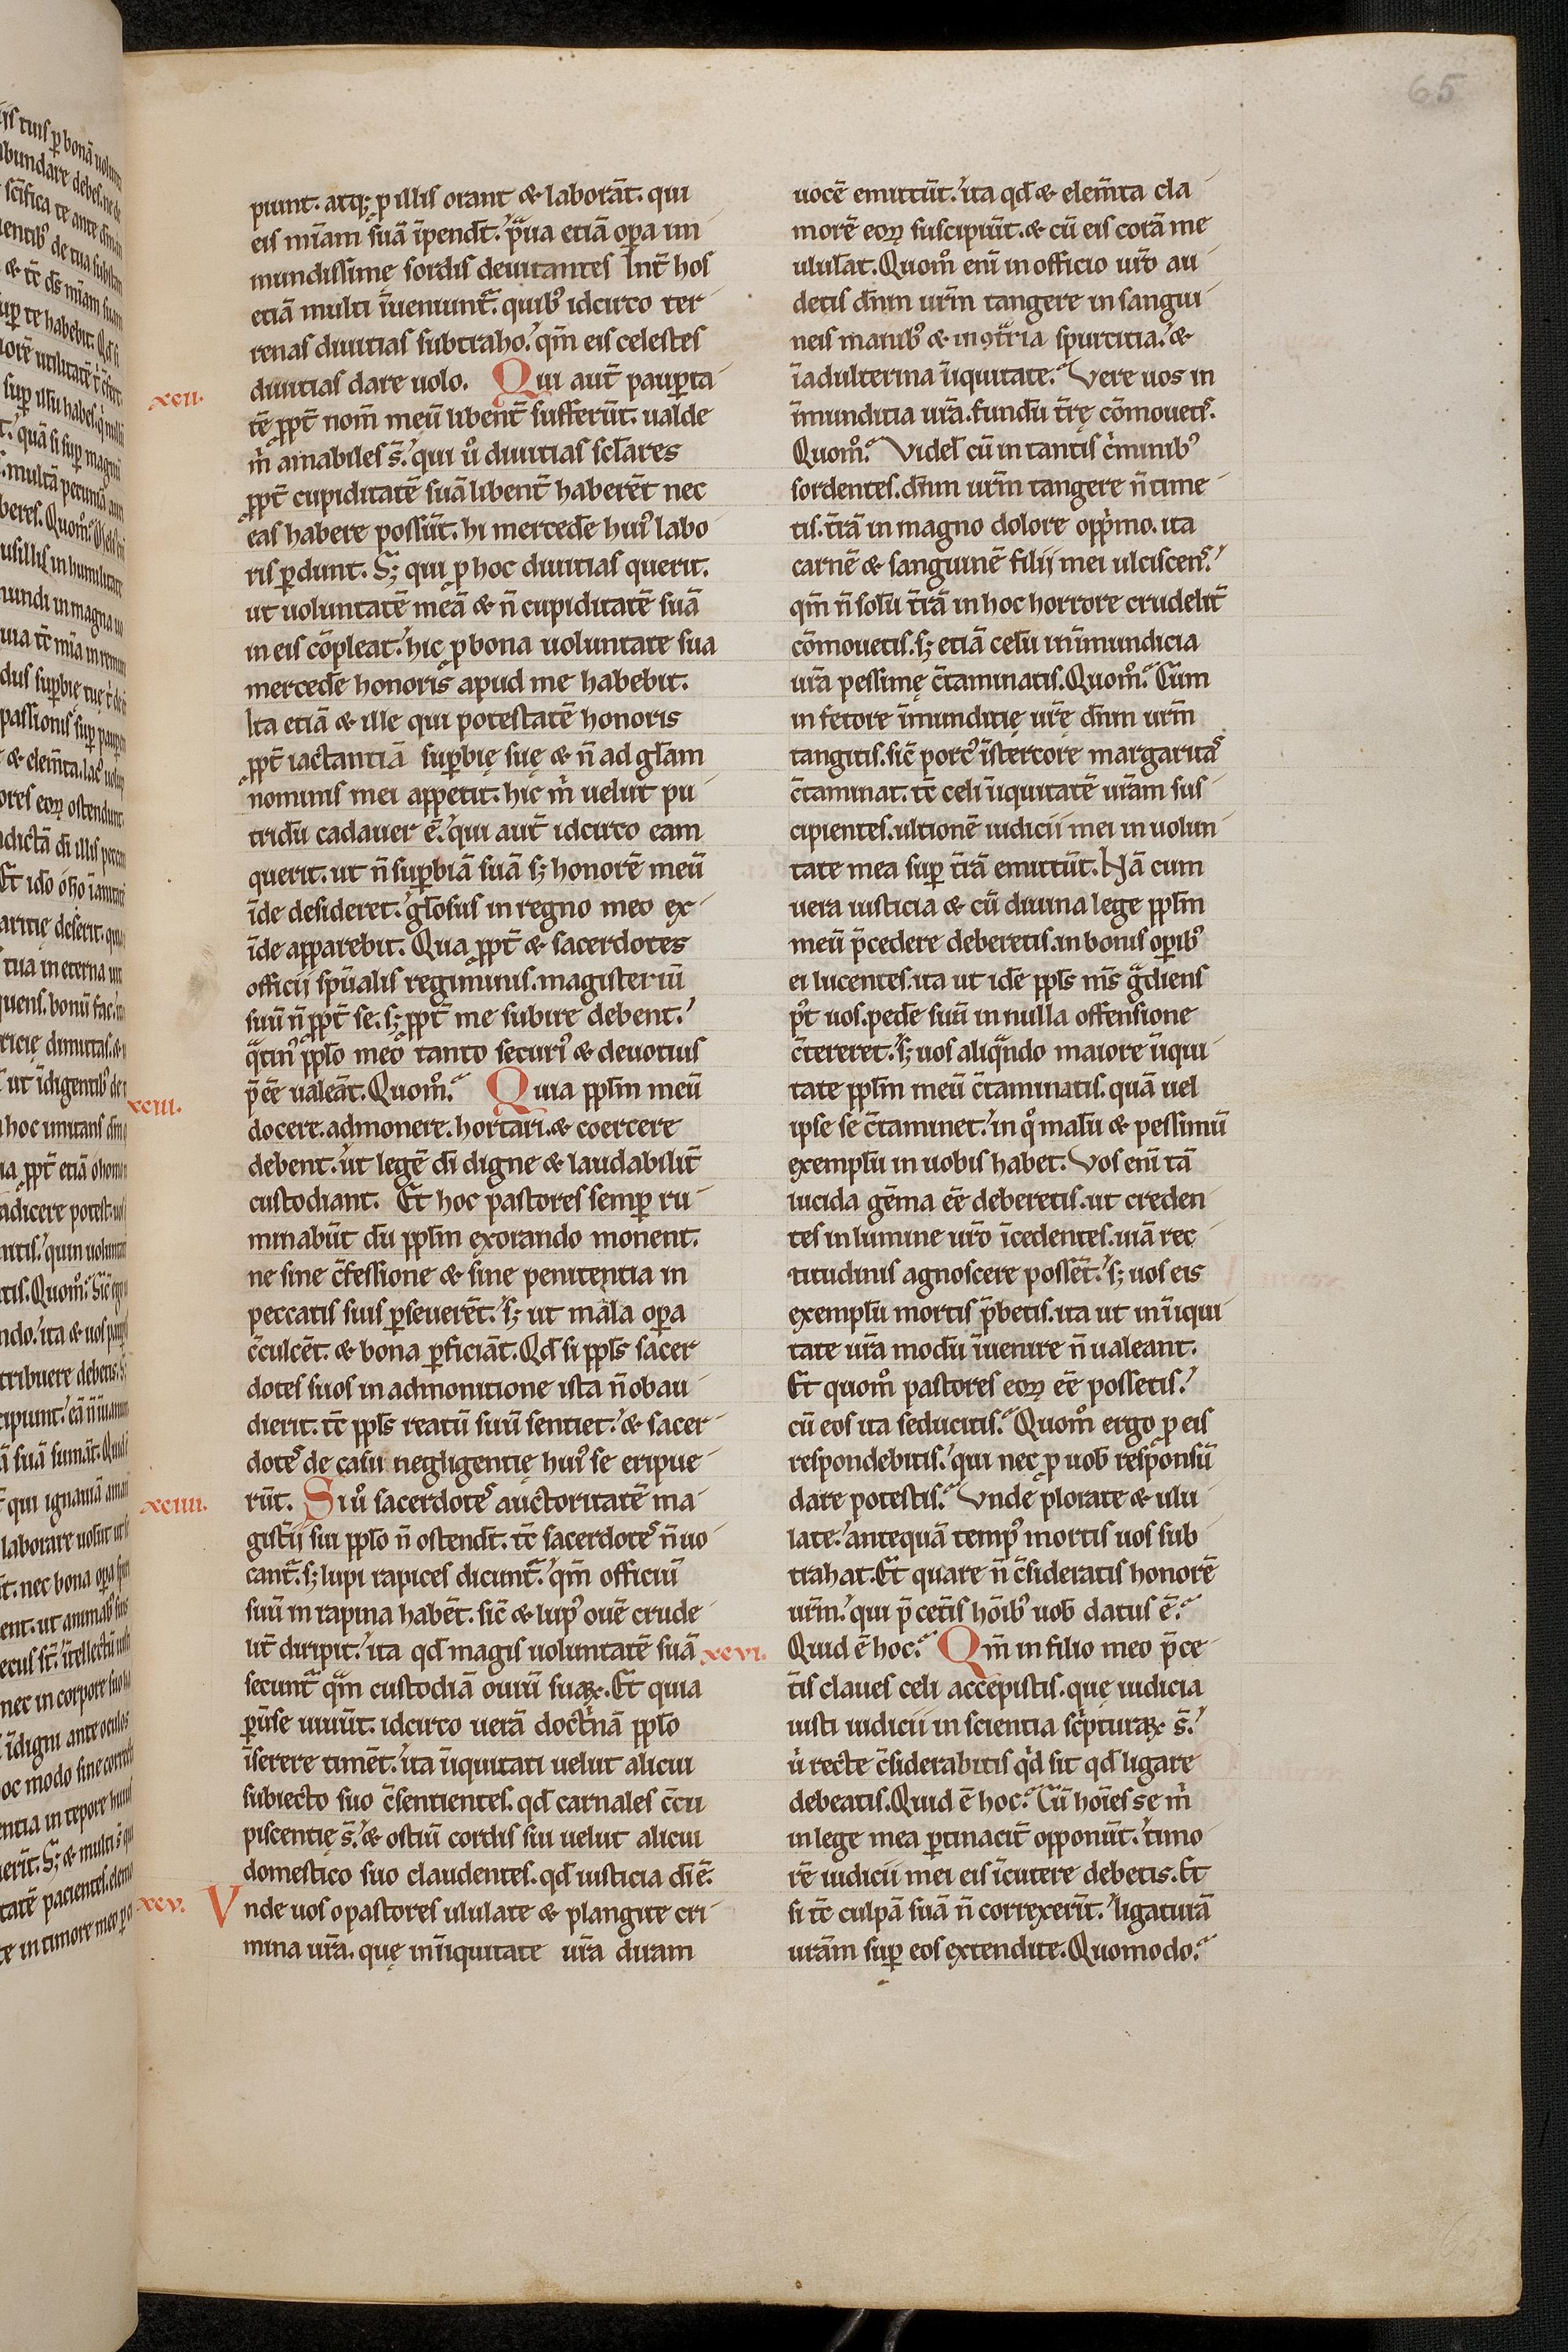 65
piunt. atq; ꝓ illis orant & laborāt. qui
eis mīam suā īpendt̄. p̄ua etiā oꝑa im
mundissimę sordis deuitantes Int̄ hos
etiā multi īueniunt᷑. quibꝰ idcirco ter
renas diuitias subtraho. qm̄ eis celestes
xcii. diuitias dare uolo. Qui aut̄ pauꝑta
tē ꝓpt̄ nom̄ meū libent̄ sufferūt. ualde
m̄ amabiles s̄. qui ů diuitias sc̄lares
ꝓpt̄ cupiditatē suā libent̄ haberēt nec
eas habere possūt. hi mercedē huiꝰ labo
ris ꝑdunt. S; qui ꝓ hoc diuitias querit.
ut uoluntatē meā & n̄ cupiditatē suā
in eis cōpleat. hic ꝓ bona uoluntate sua
mercedē honoris apud me habebit.
Ita etiā & ille qui potestatē honoris
ꝓpt̄ iactantiā suꝑbię suę & n̄ ad gl̄am
nominis mei appetit. hic m̄ uelut pu
tridū cadauer ē. qui aut̄ idcirco eam
querit. ut n̄ suꝑbiā suā s; honorē meū
īde desideret. gl̄osus in regno meo ex
īde apparebit. Qua ꝓpt̄ & sacerdotes
officij sp̄ualis regiminis. magisteriū
suū n̄ ꝓpt̄ se. s; ꝓpt̄ me subire debent.
q̄tinꝰ pplo meo tanto securiꝰ & deuotius
p̄ēē ualeāt. Quom̊. Quia pplm meū
xciii. docere. admonere. hortari. & coercere
debent. ut legē dī digne & laudabilit̄
custodiant. Et hoc pastores semꝑ ru
minabūt dū pplm exorando monent.
ne sine c̄fessione & sine penitentia in
peccatis suis ꝑseuerēt. s; ut mala oꝑa
c̄culcēt. & bona ꝑficiāt. Qd̄ si ppls sacer
dotes suos in admonitione ista n̄ obau
dierit. tc̄ ppls reatū suū sentiet. & sacer
dotes de casu negligentię huiꝰ se eripue
xciiii. rūt. Si ů sacerdotes auctoritatē ma
gist̄ij sui pplo n̄ ostendt̄. tc̄ sacerdotes n̄ uo
cant᷑. s; lupi rapices dicunt᷑. qm̄ officiū
suū in rapina habēt. sic̄ & lupꝰ ouē crude
lit̄ diripit. ita qd̄ magis uoluntatē suā
secunt᷑ q̄m custodiā ouiū suaꝝ. Et quia
ꝑuise uiuūt. idcirco uerā doctⁱnā pplo
īserere timēt. ita īiquitati uelut alicui
subiecto suo c̄sentientes. qd̄ carnales c̄cu
piscentię s̄. & ostiū cordis sui uelut alicui
domestico suo claudentes. qd̄ iusticia dī ē.
xcv. Vnde uos o pastores ululate & plangite cri
mina ur̄a. quę in īiquitate ur̄a diram
uocē emittūt. ita qd̄ & elem̄ta cla
morē eoꝝ suscipiūt. & cū eis corā me
ulul̄at. Quom̊ enī in officio ur̄o au
detis dn̄m ur̄m tangere in sangui
neis manibꝰ & in ꝯt̄ria spurcitia. &
ī adulterina īiquitate. Vere uos in
īmundicia ur̄a. fundū t̄rę cōmouetis.
Quom̊. Videl̄ cū in tantis cⁱminibꝰ
sordentes. dn̄m ur̄m tangere n̄ time
tis. t̄rā in magno dolore oppⁱmo. ita
carnē & sanguinē filij mei ulciscens.
qm̄ n̄ solū t̄rā in hoc horrore crudelit̄
cōmouetis. s; etiā celū in īmundicia
ur̄a pessimę c̄taminatis. Quom̊. Cum
in fetore īmundicię ur̄ę dn̄m ur̄m
tangitis. sic̄ porcꝰ ī stercore margaritas
c̄taminat. tc̄ celi īiquitatē ur̄am sus
cipientes. ultionē iudicii mei in uolun
tate mea suꝑ t̄rā emittūt. Nā cum
uera iusticia & cū diuina lege pplm
meū p̄cedere deberetis. in bonis oꝑibꝰ
ei lucentes. ita ut idē ppls m̄s gᵃdiens
pꝰt uos. pedē suū in nulla offensione
c̄tereret. s; uos aliqᵃndo maiore īiqui
tate pplm meū c̄taminatis. quā uel
ipse se c̄taminet. in qͦ malū & pessimū
exemplū in uobis habet. Vos enī tā
lucida gēma ēē deberetis. ut creden
tes in lumine ur̄o īcedentes. uiā rec
titudinis agnoscere possēt. s; uos eis
exemplū mortis p̄betis. ita ut in īiqui
tate ur̄a modū īuenire n̄ ualeant.
Et quom̊ pastores eoꝝ ēē possetis.
cū eos ita seducitis. Quom̊ ergo ꝓ eis
respondebitis. qui nec ꝓ uob̄ responsū
dare potestis. Vnde plorate & ulu
late. antequā tempꝰ mortis uos sub
trahat. Et quare n̄ c̄sideratis honorē
ur̄m. qui p̄ cet̄is hōibꝰ uob̄ datus ē.
xcvi. Quid ē hoc. Qm̄ in filio meo p̄ ce
t̄is claues celi accepistis. quę iudicia
iusti iudicii in scientia scⁱpturaꝝ s̄.
ů recte c̄siderabitis qⁱd sit qd̄ ligare
debeatis. Quid ē hoc. Cū hōies se m̄
in lege mea ꝑtinacit̄ opponūt. timo
rē iudicii mei eis īcutere debetis. Et
si tc̄ culpā suā n̄ correxerīt. ligaturā
uram suꝑ eos extendite. Quomodo.